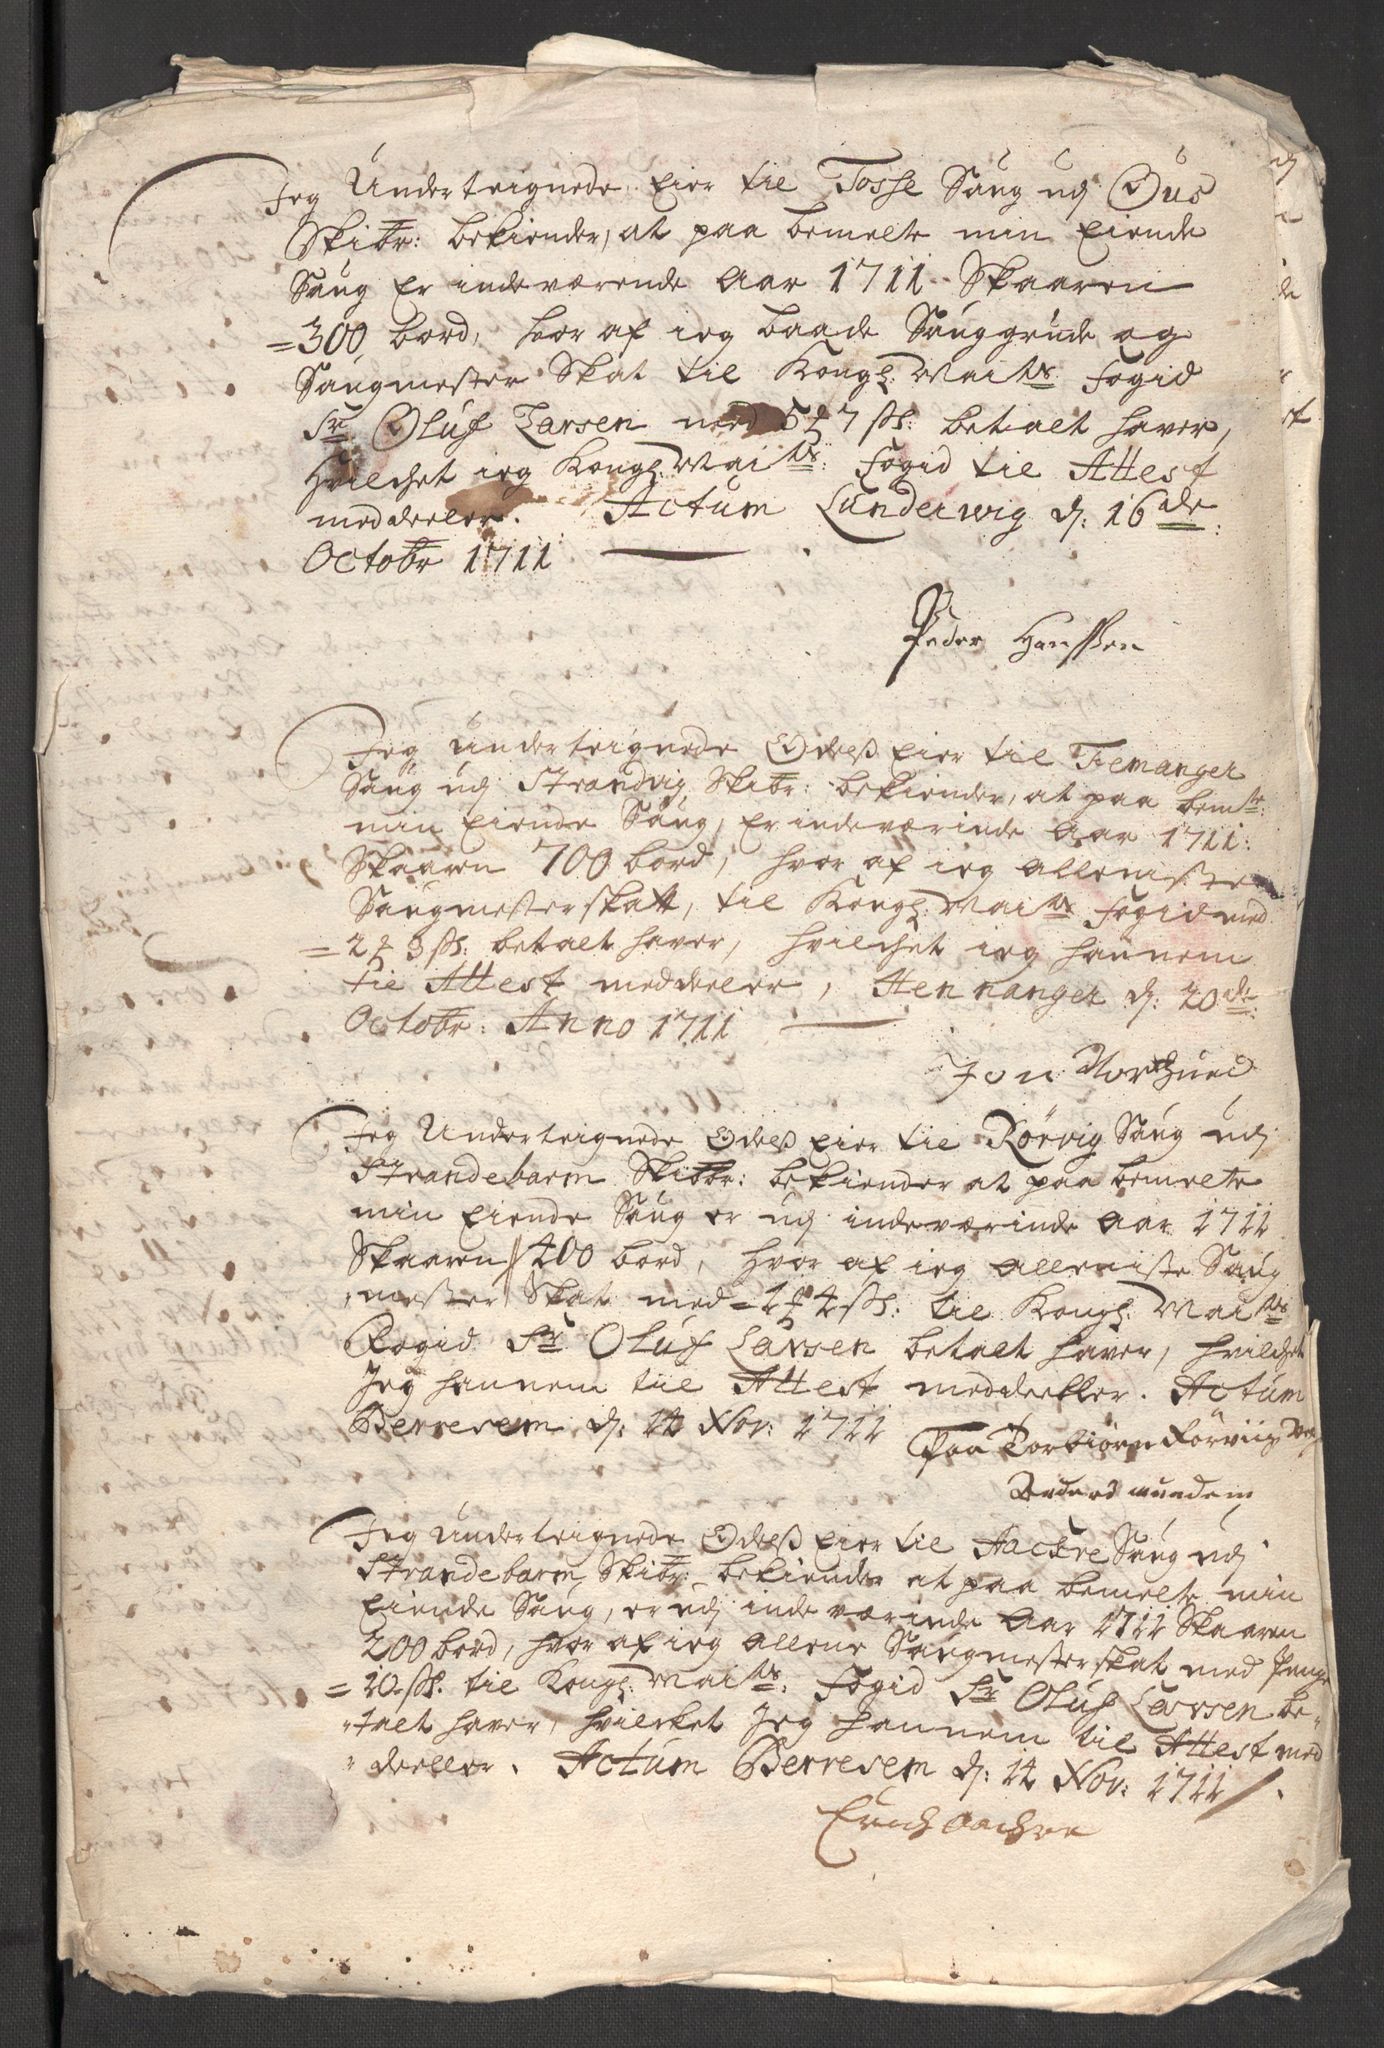 Jeg Underteignede Eier til Tosse Saug udj Ous
Skibr: bekiender, at paa bemelte min Eiende
Saug Er indeværende Aar 1711 Skaaren
=300 bord, hvor af ieg baade Sauggrunde og
Saugmester Skat til Kongl: Maits Fogid
Sr Oluf Larsen med 5 ₰ 7 ss: betalt haver,
Hvilchet ieg Kongl: Maits: Fogid til Attest
meddeeler. Actum Lunderwig d: 16de
Octobr 1711
Peder Hanssen
Jeg underteignede Odelss eier til Tiemanger
Saug udj Strandvig Skibr: bekiender, at paa bemte:
min Eiende Saug, Er indeværinde Aar 1711:
Skaaren 700 bord, hvor af ieg alleniste
Saugmesterskatt, til Kongl: Maits Fogid med
=2 ₰ 3 ss: betalt haver, hvilchet ieg hannem
til Attest meddeeler, Hennanger d: 20de:
Octobr: Anno 1711
Jon Northued
Jeg Underteignede Odelss eier til Rörvig Saug udj
Strandebarm Skibbr: bekiender at paa bemelte
min Eiende Saug er udj indeværinde Aar 1711
Skaaren 400 bord, hvor af ieg alleniste Saug
mester Skat med =1 ₰ 4 ss: til Kongl: Maits
Fogid Sr Oluf Larsen betalt haver, hvilchet
Jeg hannem til Attest meddeeller. Actum
Berresem d: 14 Nov: 1711
Paa Torbiörn Rörviigs
Jeg Underteignede Odelss eier til Aackre Saug udj
Strandebarm Skibr: bekiender at paa bemelte min
Eiende Saug, er udj indeværinde Aar 1711 Skaaren
200 bord, hvor af ieg allene Saugmesterskat med Penge
=20 ss. til Kongl: Maits: Fogid Sr Oluf Larsen be-
talt haver, hvilcket Jeg hannem til Attest med
deeller. Actum Berresem d: 14 Nov: 1711
Erich Aachre